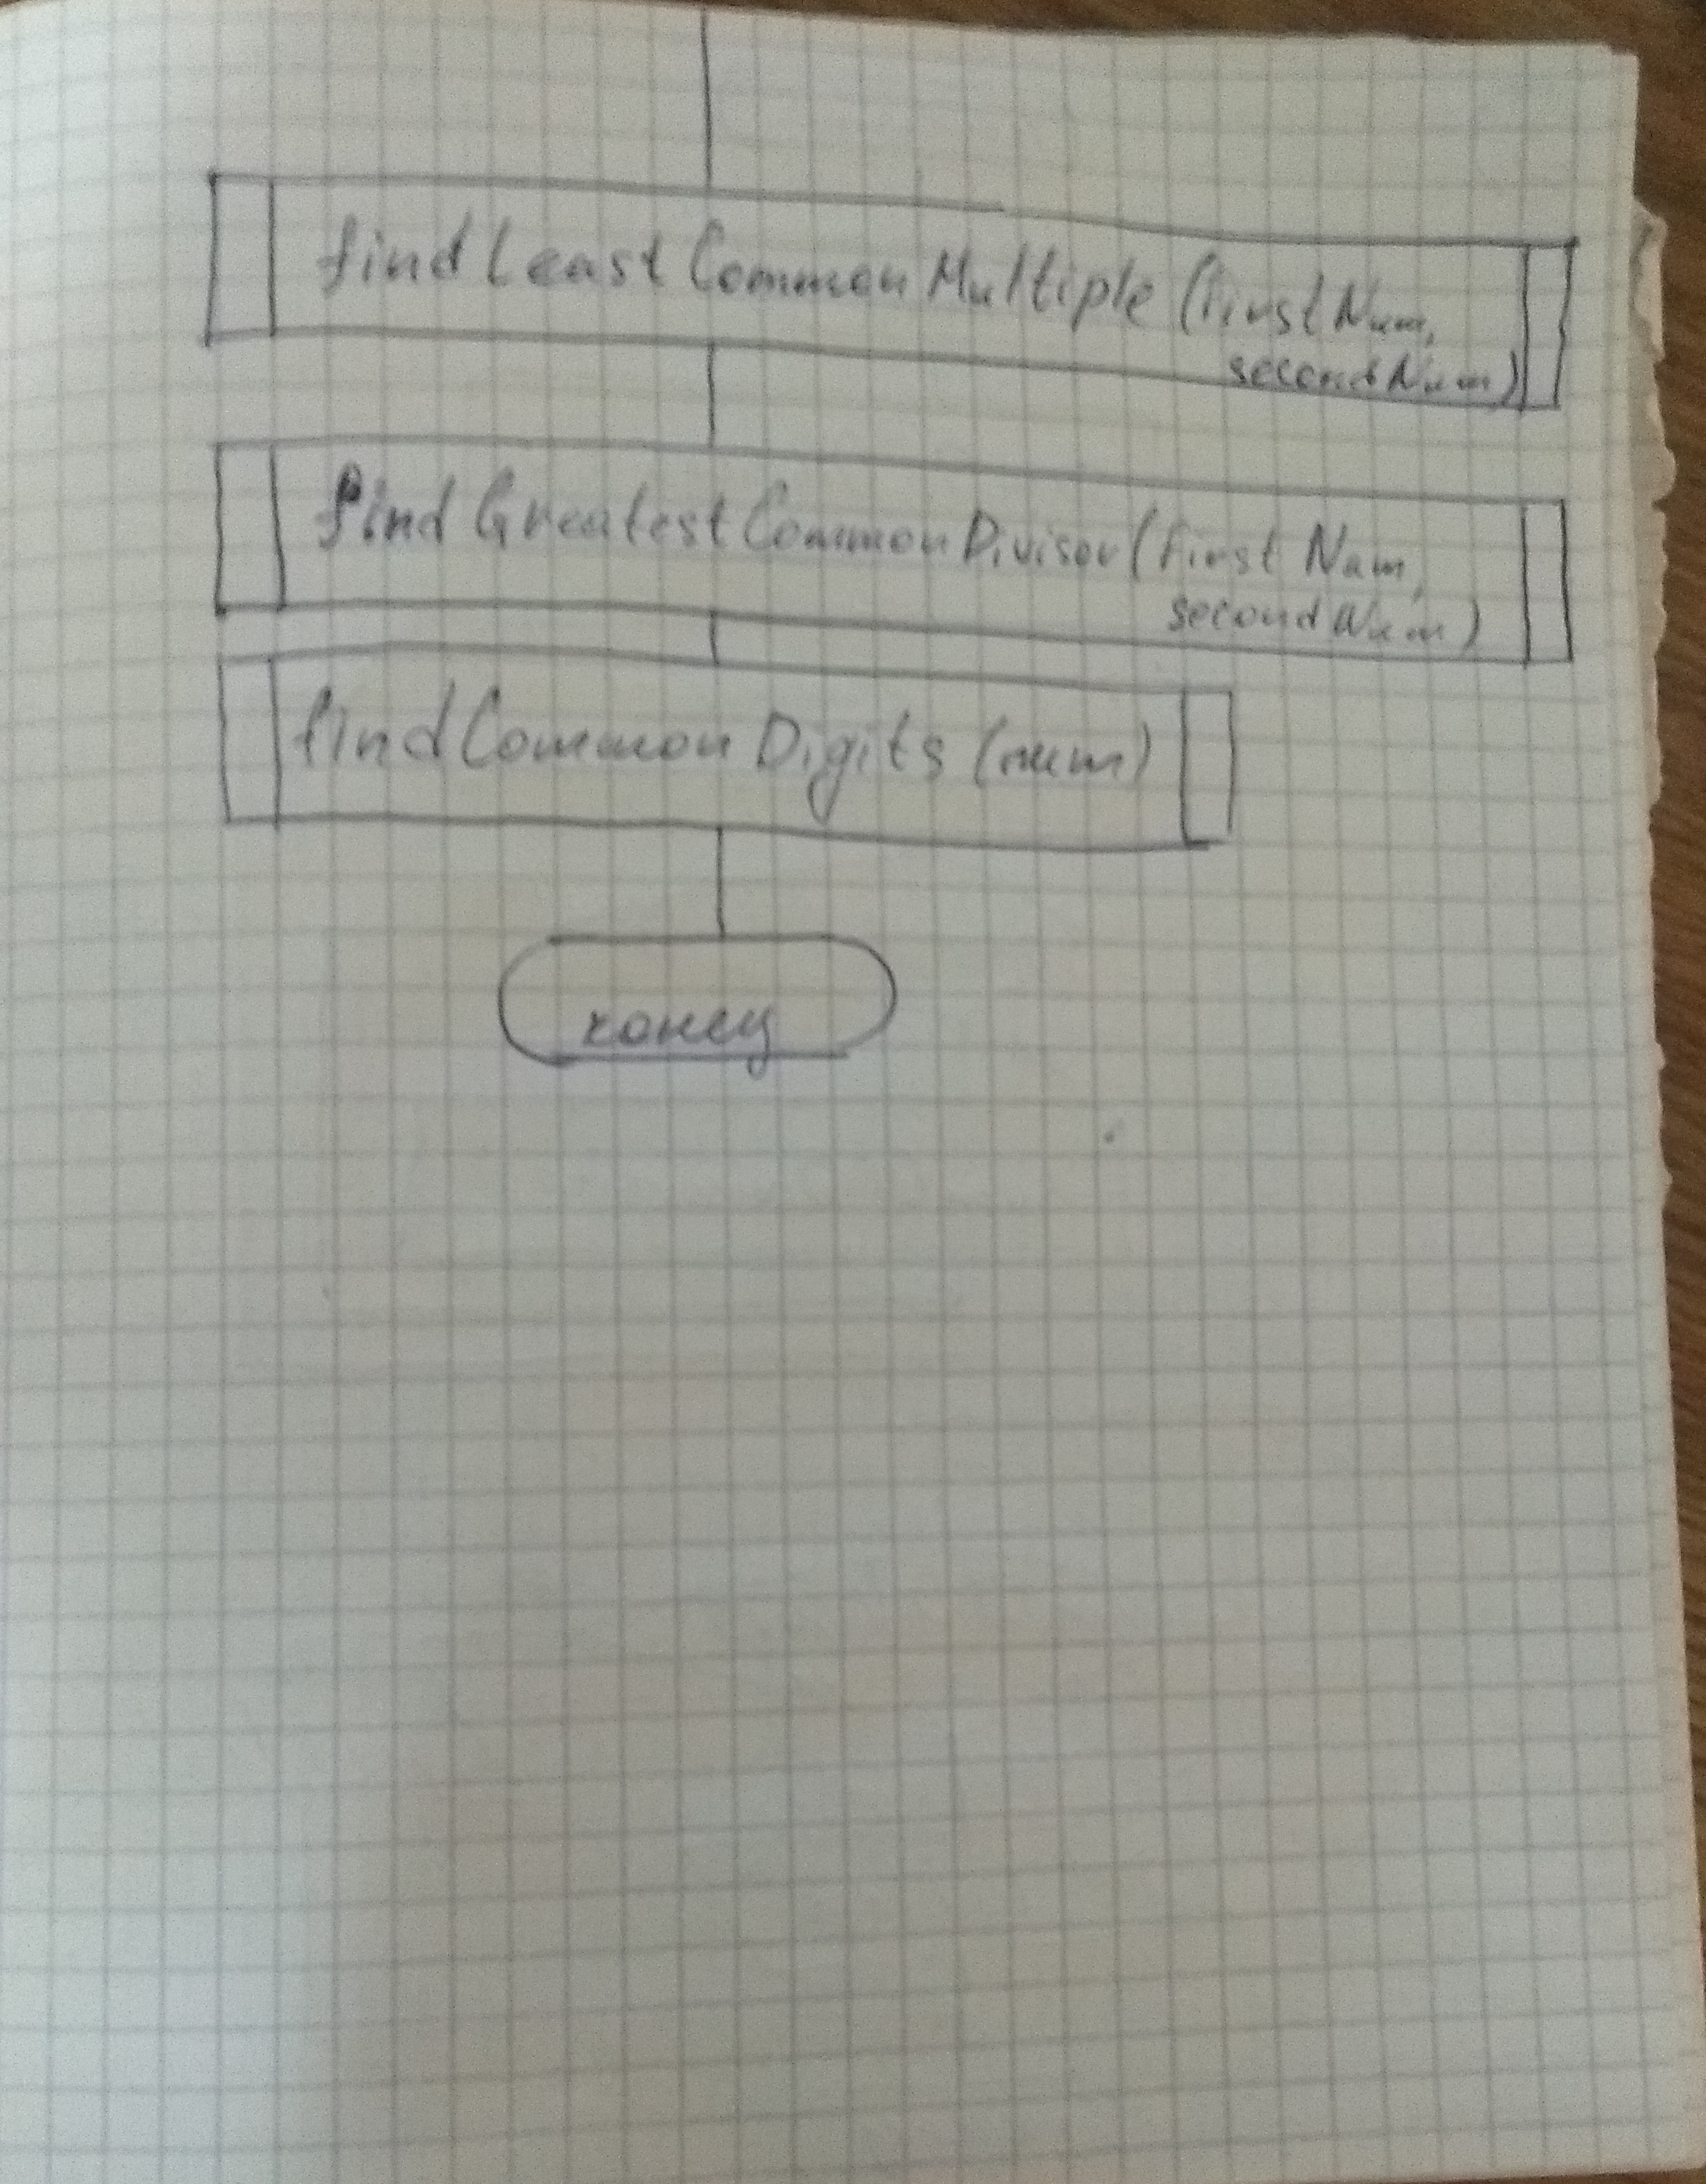 findLeastCommonMultiple(firstNum,
secondNum)
findGreatestCommonDivisor(firstNum,
secondNum)
findCommonDigits(num)
конец